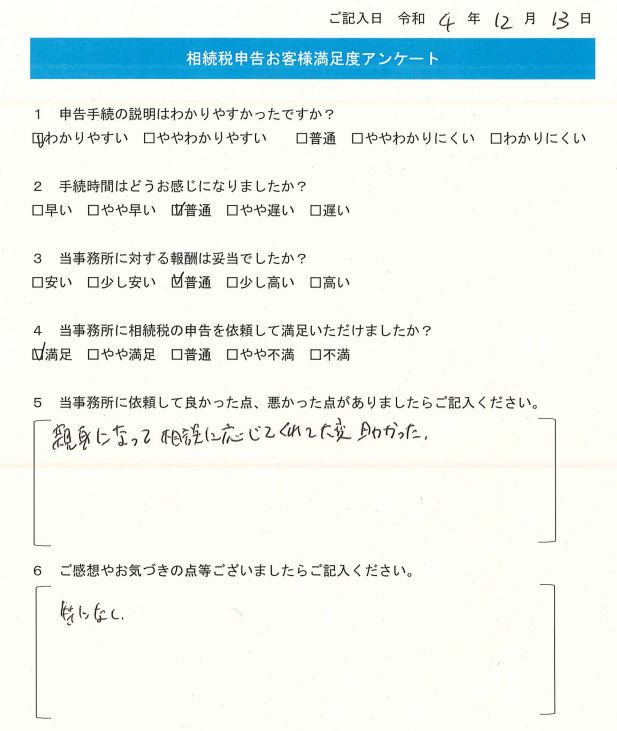 ご記入日 令和 4 年 12 月 13 日
相続税申告お客様満足度アンケート
1 申告手続の説明はわかりやすかったですか？
☑わかりやすい □ややわかりやすい □普通 □ややわかりにくい □わかりにくい
2 手続時間はどうお感じになりましたか？
□早い □やや早い ☑普通 □やや遅い □遅い
3 当事務所に対する報酬は妥当でしたか？
□安い □少し安い ☑普通 □少し高い □高い
4 当事務所に相続税の申告を依頼して満足いただけましたか？
☑満足 □やや満足 □普通 □やや不満 □不満
5 当事務所に依頼して良かった点、悪かった点がありましたらご記入ください。
親身になって相談に応じてくれて大変助かった。
6 ご感想やお気づきの点等ございましたらご記入ください。
特になし.